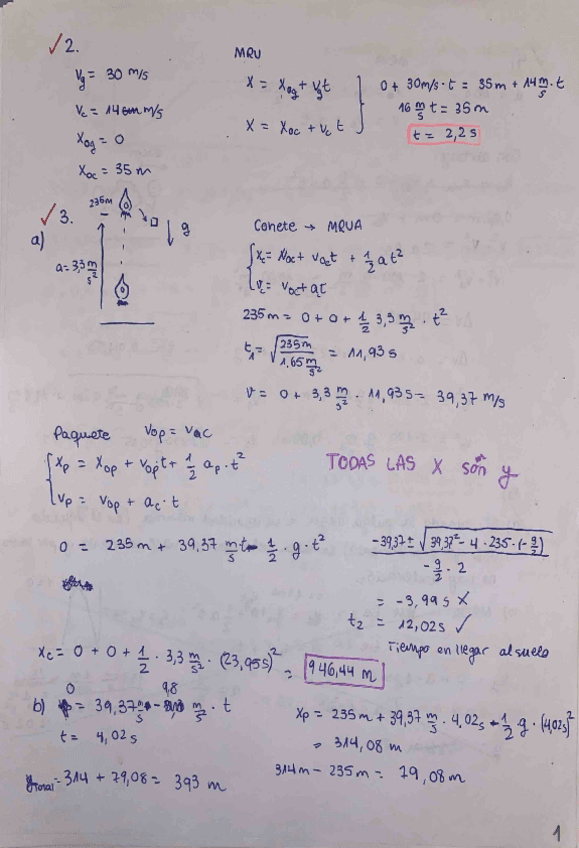 ✓2.
MRU
v_g = 30 m/s
v_c = 14 m/s
x_og = 0
x_oc = 35 m
x = x_og + v_g t
x = x_oc + v_c t
0 + 30 m/s · t = 35m + 14 m/s t
16 m/s t = 35 m
t = 2,2 s
✓3.
a)
235m
g
a = 3,3 m/s²
Cohete → MRUA
x_c = x_oc + v_oc t + 1/2 a t²
v_c = v_oc + a_c t
235 m = 0 + 0 + 1/2 3,3 m/s² · t²
t₁ = √(235m / 1,65 m/s²) = 11,93 s
v = 0 + 3,3 m/s² · 11,93 s = 39,37 m/s
Paquete v_op = v_oc
x_p = x_op + v_op t + 1/2 a_p · t²
v_p = v_op + a_c · t
TODAS LAS X son y
0 = 235 m + 39,37 m/s t - 1/2 · g · t²
(-39,37 ± √(39,37² - 4 · 235 · (-g/2))) / (-g/2 · 2)
= -3,99 s ✗
t₂ = 12,02 s ✓
Tiempo en llegar al suelo
x_c = 0 + 0 + 1/2 · 3,3 m/s² · (23,95s)² = 946,44 m
b) 0 = 39,37 m/s - 9,8 m/s² · t
t = 4,02 s
x_p = 235 m + 39,37 m/s · 4,02s - 1/2 g · (4,02s)²
= 314,08 m
314m - 235 m = 79,08 m
y_total = 314 + 79,08 = 393 m
1